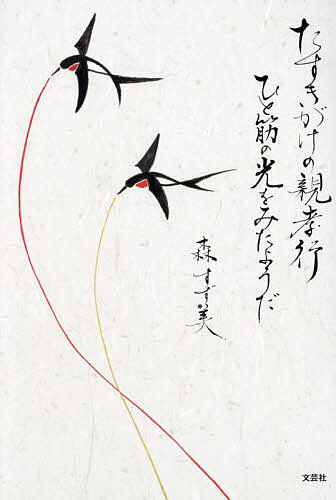 たすきがけの親孝行
ひと筋の光をみたようだ
森すず美
文芸社